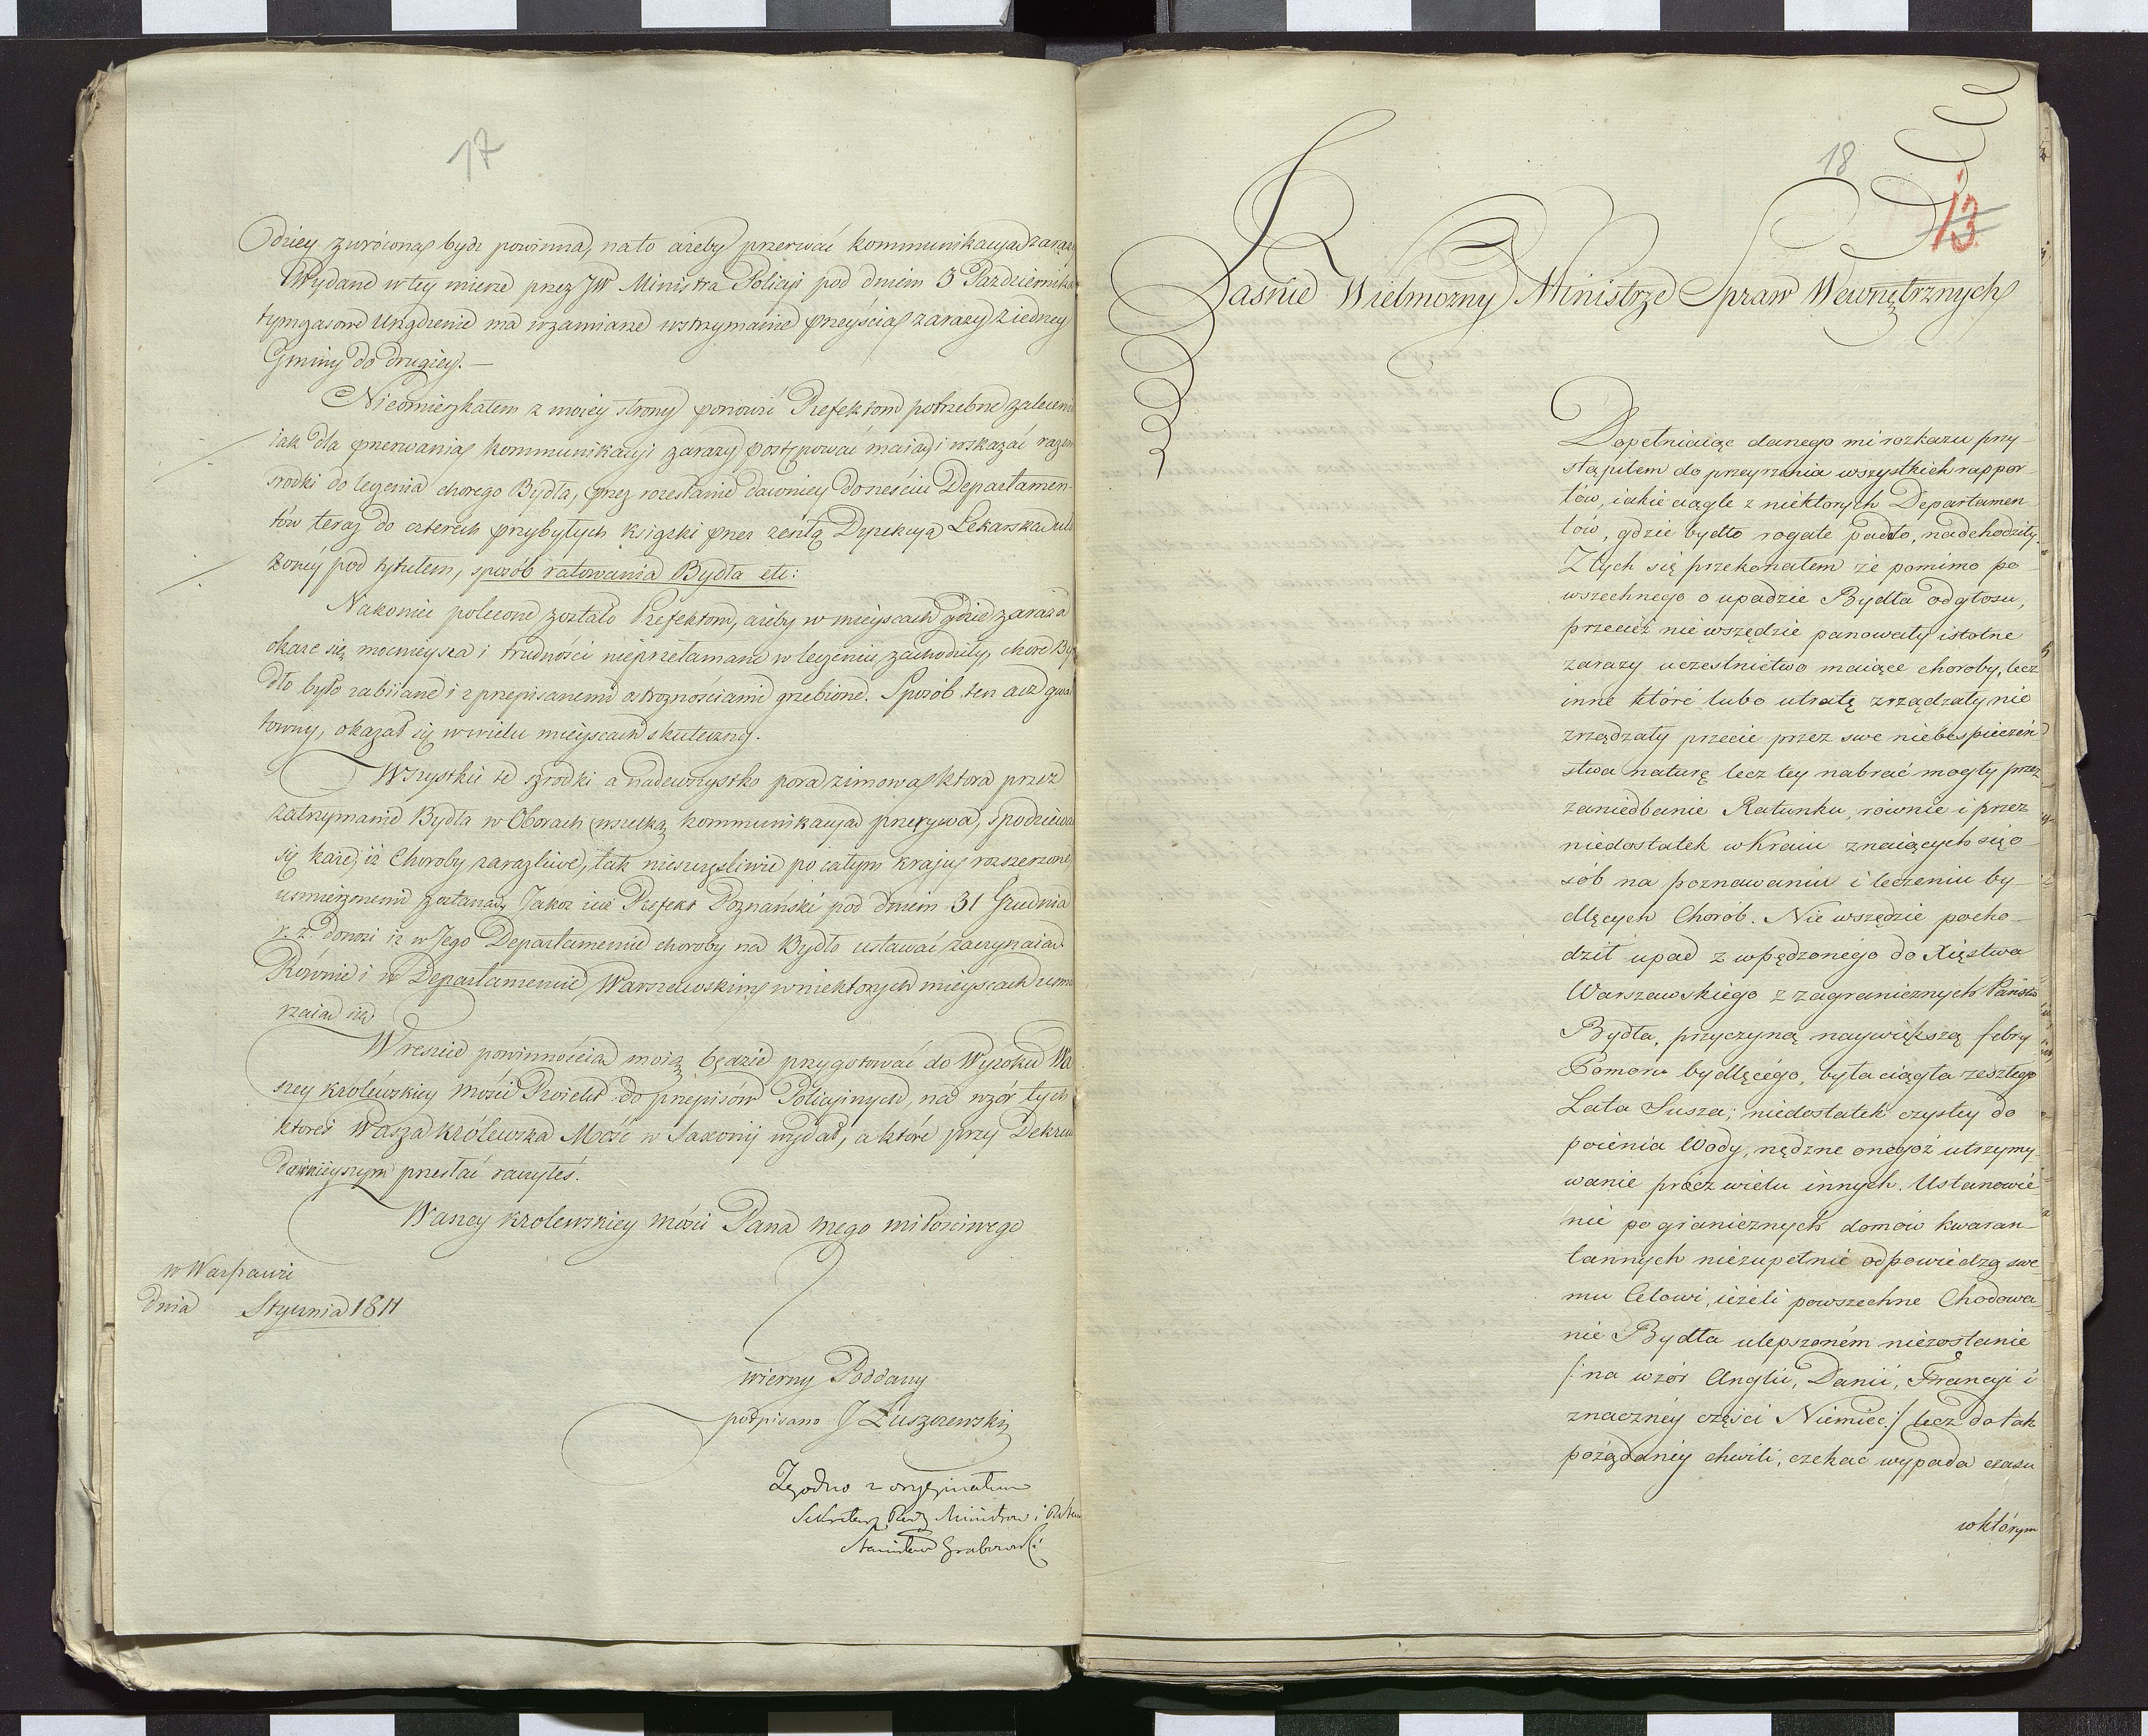 17
dziey zwróconą bydź powinna, na to ażeby przerwać kommunikacyą zarazy
Wydane w tey mierze przez JW Ministra Policyi pod dniem 3 Pazdziernika
tymczasowe Urządzenie ma w zamiarze wstrzymanie przeyścia zarazy z iedney
Gminy do drugiey. —
Nieomieszkałem z moiey strony ponowić Prefektom potrzebne zalecenia
iak dla przerwania kommunikacyi zarazy postępować maią i wskazać razem
srodki do leczenia chorego Bydła, przez rozesłanie dawniey do sześciu Departamen-
tów teraz do czterech przybyłych ksiązki przez zeszłą Dyrekcyą Lekarską uło
żoney pod tytułem, sposób ratowania Bydła etc:
Nakoniec polecone zostało Prefektom, ażeby w mieyscach gdzie zaraza
okaże się mocnieysza i trudności nieprzełamane w leczeniu zachodziły, chore By
dło było zabiiane i z przepisanemi ostrożnościami grzebione. Sposób ten acz gwał
towny, okazał się w wielu mieyscach skuteczny.
Wszystkie te szrodki a nadewszystko pora zimowa która przez
zatrzymanie Bydła w Oborach wszelką kommunikacyą przerywa, spodziewać
się każe, iż Choroby zaraźliwe, tak nieszczęsliwie po całym kraju rozszerzone,
usmierzonemi zostaną. Jakoż iuż Prefekt Poznański pod dniem 31 Grudnia
r. z. donosi iż w Jego Departamencie choroby na Bydło ustawać zaczynaią
Równie i w Departamencie Warszawskim w niektorych mieyscach usmie
rzaią się
Wreszcie powinnością moią będzie przygotować do Wyroku Wa
szey królewskiey Mości Proiekt do przepisów Policyinych, na wzór tych
któreś Wasza królewska Mość w Saxonij wydał, a które przy Dekrecie
dawnieyszym przesłać raczyłeś.
Waszey krolewskiey Mości Pana mego miłościwego
w Warszawie
dnia Stycznia 1811
wierny Poddany
podpisano J Łuszczewski
Zgodno z oryginałem
Sekretarz Rady Ministrow i
Stanisław Grabowski
18
13
Jasnie Wielmozny Ministrze Spraw Wewnętrznych
Dopełniaiąc danego mi rozkazu przy-
stąpiłem do przeyrzenia wszystkich rappor-
tów, iakie ciągle z niektorych Departamen-
tów, gdzie bydło rogate padło, nadchodziły.
Z tych się przekonałem że pomimo po-
wszechnego o upadzie Bydła odgłosu,
przecież nie wszędzie panowały istotne
zarazy uczestnictwo maiące choroby, lecz
inne które lubo utratę zrządzały nie
zrządzały przecie przez swe niebespieczeń
stwa naturę lecz tey nabrać mogły przez
zaniedbanie Ratunku, równie i przez
niedostatek w Kraiu znaiących się o-
sób na poznawaniu i leczeniu by-
dlęcych Chorób. Nie wszędzie pocho-
dził upad z wpędzonego do Xięstwa
Warszawskiego z zagranicznych Państw
Bydła, przyczyną naywiększą febry
Pomoru bydlęcego, była ciągła zeszłego
Lata Susza; niedostatek czystey do
poienia Wody, nędzne onegoż utrzymy-
wanie prócz wielu innych. Ustanowie
nie pogranicznych domów kwaran-
tannych niezupełnie odpowiedzą swe-
mu Celowi, ieżeli powszechne Chodowa-
nie Bydła ulepszoném niezostanie
/: na wzór Anglii, Danii, Francyi i
znaczney części Niemiec:/ lecz do tak
pożądaney chwili, czekać wypada czasu
w którym